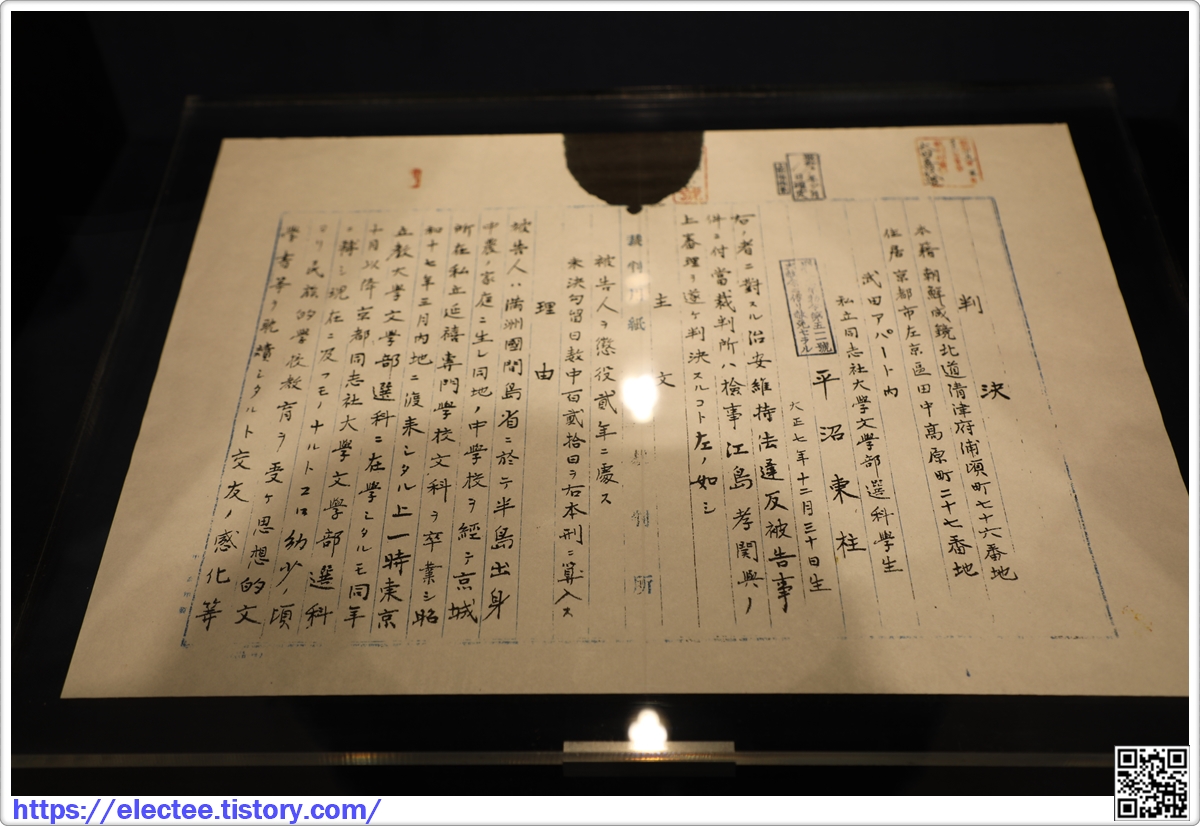 判決
本籍 朝鮮咸鏡北道清津府浦項町七十六番地
住居 京都市左京區田中高原町二十七番地
武田アパート内
私立同志社大學文學部選科學生
平沼東柱
大正七年十二月三十日生
右ノ者ニ對スル治安維持法違反被告事
件ニ付當裁判所ハ檢事江島孝関與ノ
上審理ヲ遂ケ判決スルコト左ノ如シ
主文
被告人ヲ懲役貳年ニ處ス
未決勾留日數中百貳拾日ヲ右本刑ニ算入ス
理由
被告人ハ滿洲國間島省ニ於テ半島出身
中農ノ家庭ニ生レ同地ノ中學校ヲ經テ京城
所在私立延禧專門學校文科ヲ卒業シ昭
和十七年三月内地ニ渡来シタル上一時東京
立教大學文學部選科ニ在學シタルモ同年
十月以降京都同志社大學文學部選科
ニ轉シ現在ニ及フモノナルトコロ幼少ノ頃
ヨリ民族的學校教育ヲ受ケ思想的文
學書等ヲ耽讀シタルト交友ノ感化等
https://electee.tistory.com/